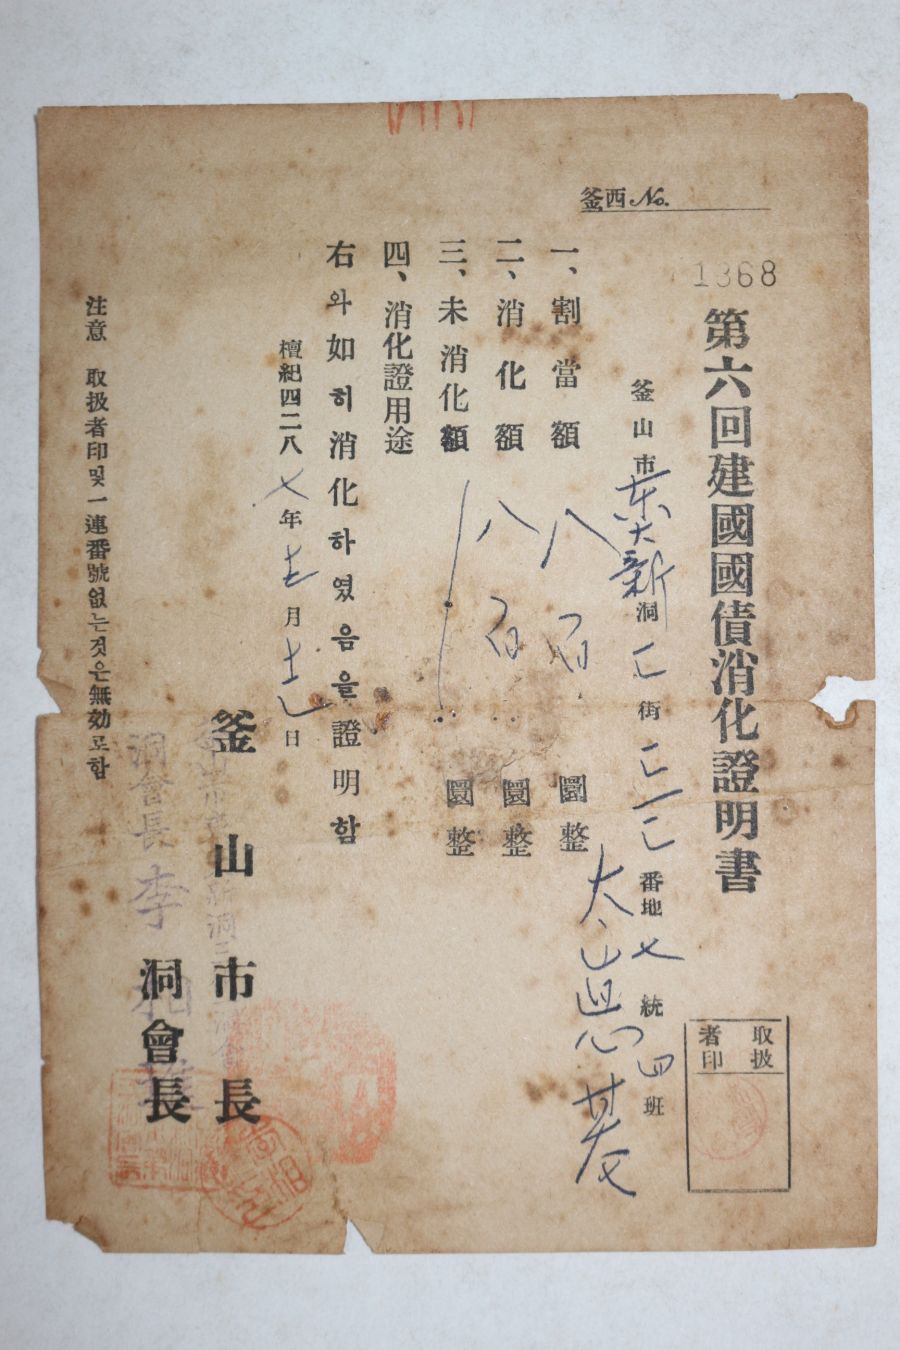 釜西 No.
1368
第六回建國國債消化證明書
釜山市東大新洞二街 番地七統四班
一、割當額 八百 圜整
二、消化額 八百 圜整
三、未消化額 圜整
四、消化證用途
右와如히消化하였음을證明함
檀紀四二八七年 月 日
釜山市長
洞會長
洞會長 李
注意 取扱者印및一連番號없는것은無効로함
取扱
者印